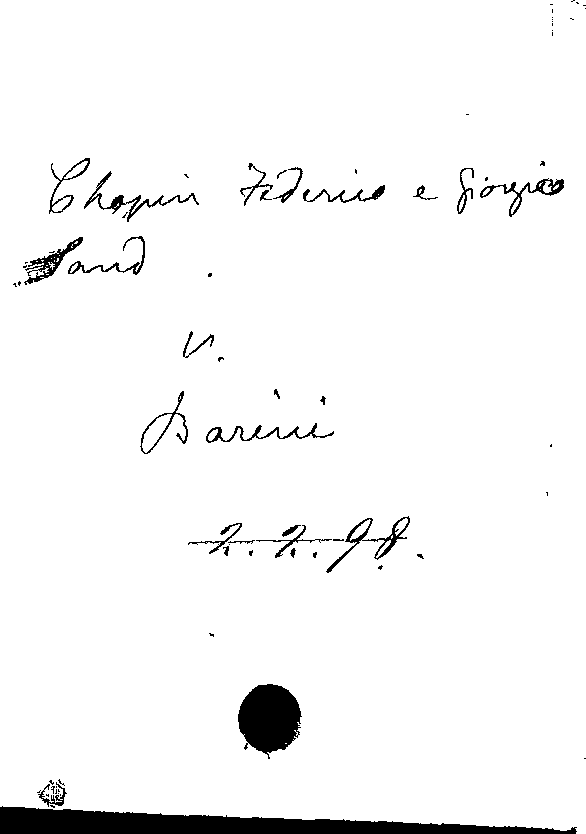 Chopin Federico e Giorgio
Sand.
V.
Barini
2.2.98.